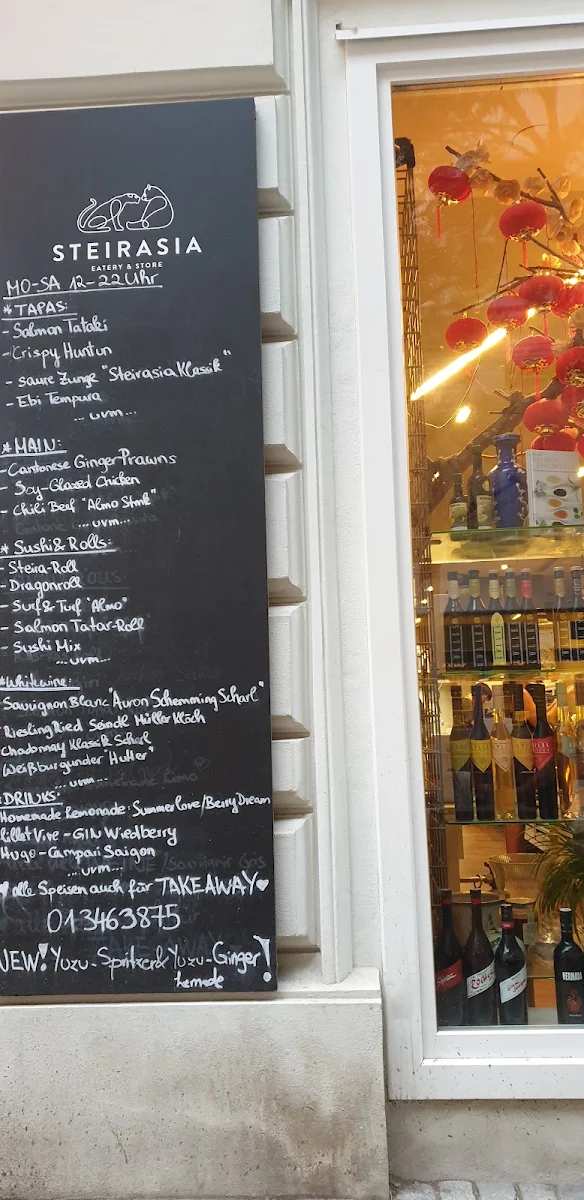 STEIRASIA
EATERY & STORE
MO-SA 12-22 Uhr
* TAPAS:
- Salmon Tataki
- Crispy Huntun
- saure Zunge "Steirasia Klassik"
- Ebi Tempura
... uvm...
* MAIN:
- Cantonese Ginger Prawns
- Soy-Glazed Chicken
- Chili Beef "Almo Strnk"
... uvm...
* Sushi & Rolls:
- Steira-Roll
- Dragonroll
- Surf & Turf "Almo"
- Salmon Tatar-Roll
- Sushi Mix
... uvm...
*Whitewine:
Sauvignon Blanc "Auron Schemming Scharl"
Riesling Ried Seindl Müller Klöch
Chardonnay Klassik Scharl
Weißburgunder "Hutter"
... uvm...
DRINKS:
Homemade Lemonade: Summerlove/Berry Dream
Lillet Vive - GIN Wiedberry
Hugo - Campari Saigon
... uvm...
alle Speisen auch für TAKEAWAY
01 3463875
NEW! Yuzu-Spritzer & Yuzu-Ginger!
Lemode
VERMADA